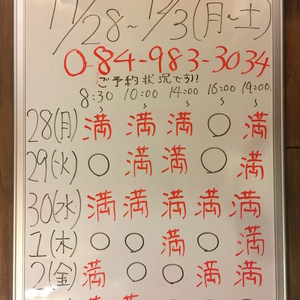 11/28~12/3(月~土)
0-84-983-3034
ご予約状況です!!
8:30 10:00 14:00 16:00 19:00
~ ~ ~ ~ ~
28(月) 満 満 満 ○ 満
29(火) ○ 満 満 ○ 満
30(水) 満 満 満 満 満
1(木) ○ ○ 満 ○ 満
2(金) 満 ○ ○ 満 満